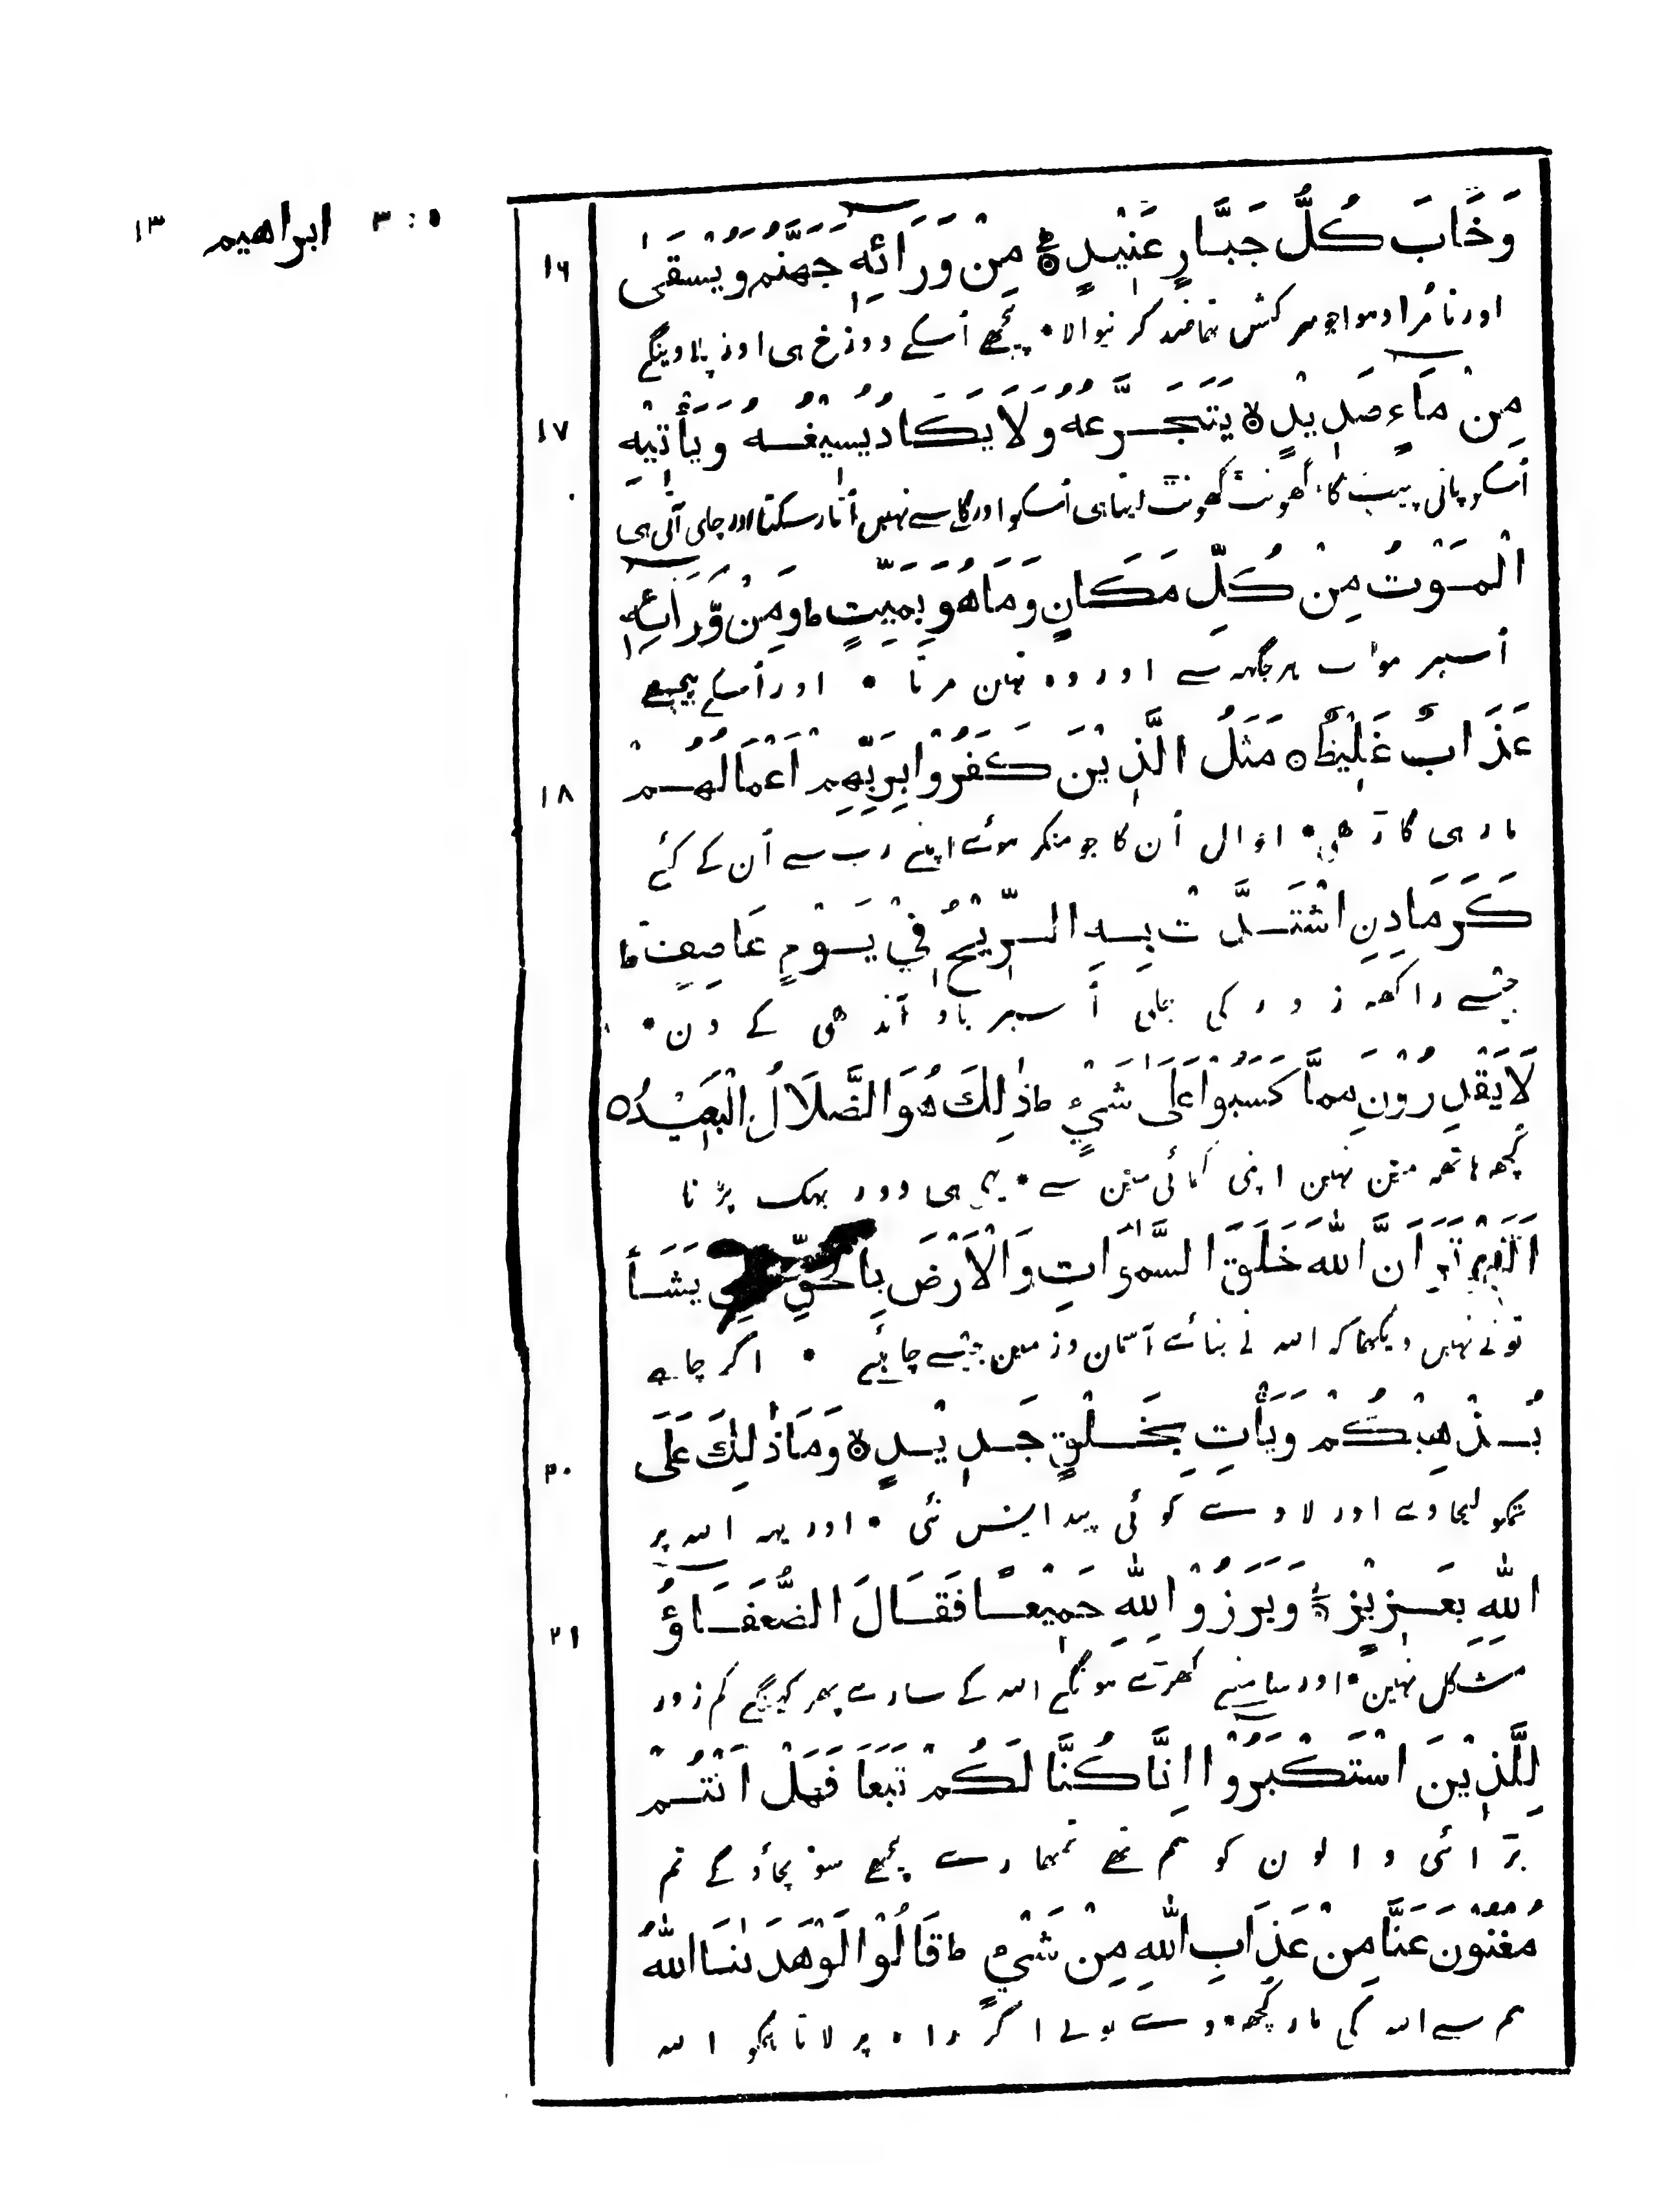 ۱۳ ابراهیم ۳ : ۱
وَخَابَ كُلُّ جَبَّارٍ عَنِيْدٍ ۙ مِنْ وَّرَآئِهٖ جَهَنَّمُ وَيُسْقٰى
۱۶
اور نامُراد ہوا جو سرکش تھا ضد کرنیوالا • پیچھے اُسکے دوزخ ہی اور پلاوینگے
مِنْ مَآءٍ صَدِيْدٍ ۙ يَتَجَرَّعُهٗ وَلَا يَكَادُ يُسِيْغُهٗ وَيَأْتِيْهِ
۱۷
اُسکو پانی پیپ کا • گھونٹ گھونٹ لیتا ہی اُسکو اور گلے سے نہیں اُتار سکتا اور چلی آتی ہی
الْمَوْتُ مِنْ كُلِّ مَكَانٍ وَمَا هُوَ بِمَيِّتٍ ط وَمِنْ وَّرَآئِهٖ
اُسپر موت ہر جگہہ سے اور وہ نہین مرتا • اور اُسکے پیچھے
عَذَابٌ غَلِيْظٌ ○ مَثَلُ الَّذِيْنَ كَفَرُوْا بِرَبِّهِمْ اَعْمَالُهُمْ
۱۸
مار ہی گاڑھی • احوال اُن کا جو منکر ہوئے اپنے رب سے اُن کے کئے
كَرَمَادِنِ اشْتَدَّتْ بِهِ الرِّيْحُ فِيْ يَوْمٍ عَاصِفٍ ط
جیسے راکھہ زور کی چلی اُسپر باو آندھی کے دن •
لَا يَقْدِرُوْنَ مِمَّا كَسَبُوْا عَلٰى شَيْءٍ ط ذٰلِكَ هُوَ الضَّلَالُ الْبَعِيْدُ ○
کچھہ ہاتھہ مین نہین اپنی کمائی مین سے • یہی ہی دور بھک پڑنا
اَلَمْ تَرَ اَنَّ اللّٰهَ خَلَقَ السَّمٰوَاتِ وَالْاَرْضَ بِالْحَقِّ يَشَأْ
تو نے نہیں دیکھا کہ اللہ نے بنائے آسمان و زمین جیسے چاہئے • اگر چاہے
يُذْهِبْكُمْ وَيَأْتِ بِخَلْقٍ جَدِيْدٍ ۙ وَمَا ذٰلِكَ عَلَى
۲۰
تمکو لیجاوے اور لاوے کوئی پیدایش نئی • اور یہہ اللہ پر
اللّٰهِ بِعَزِيْزٍ وَبَرَزُوْا لِلّٰهِ جَمِيْعًا فَقَالَ الضُّعَفَآؤُ
۲۱
مشکل نہین • اور سامنے کھڑے ہونگے اللہ کے سارے پھر کہینگے کم زور
لِلَّذِيْنَ اسْتَكْبَرُوْا اِنَّا كُنَّا لَكُمْ تَبَعًا فَهَلْ اَنْتُمْ
بڑائی والون کو ہم تھے تمھارے پیچھے سو بچاؤ گے تم
مُّغْنُوْنَ عَنَّا مِنْ عَذَابِ اللّٰهِ مِنْ شَيْءٍ ط قَالُوْا لَوْ هَدٰىنَا اللّٰهُ
ہم سے اللہ کی مار کچھہ • وے بولے اگر راہ پر لاتا ہمکو اللہ